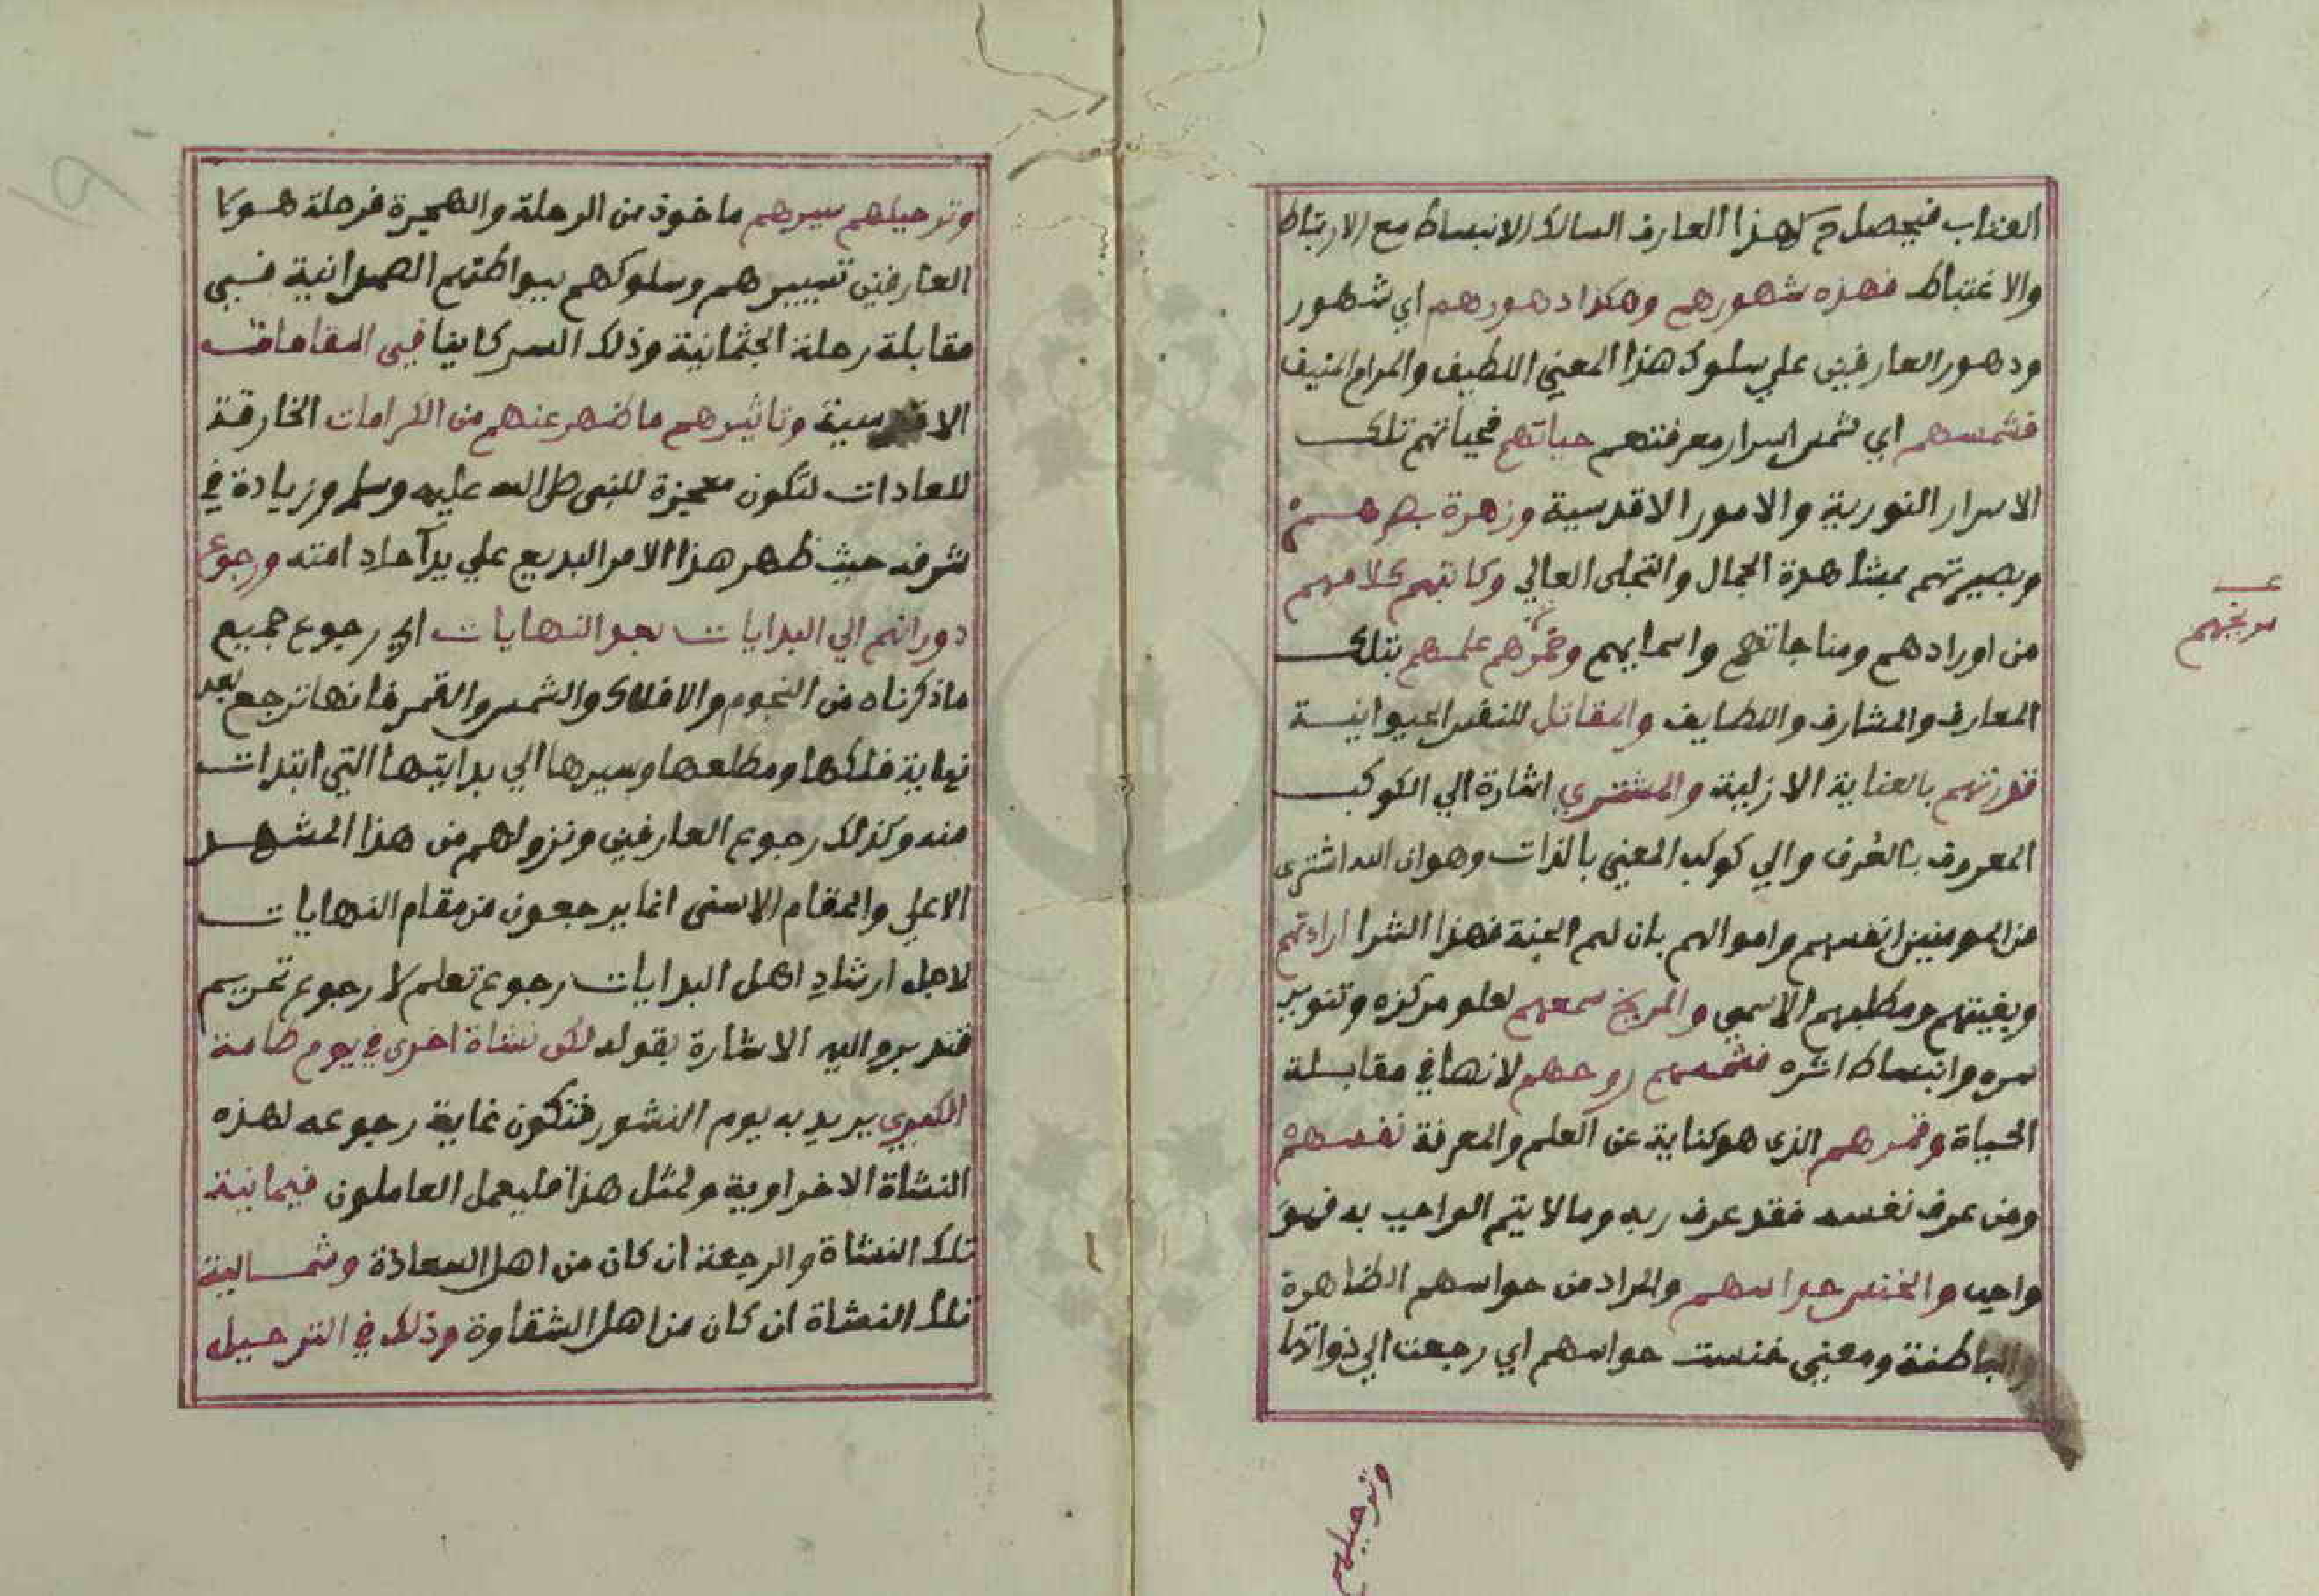 العذاب فيحصل لهذا العارف السالك الانبساط مع الارتباط
والاغتباط فهذه شهورهم وهكذا دهورهم اي شهور
ودهور العارفين علي سلوك هذا المعني اللطيف والمرام المنيف
فشمسهم اي شمس اسرار معرفتهم حياتهم فحياتهم تلك
الاسرار النورية والامور الاقدسية وزهرة بصرهم
وبصيرتهم بمشاهدة الجمال والتجلى العالي وكاتبهم كلامهم
من اورادهم ومناجاتهم واسمايهم وقمرهم علمهم بتلك
المعارف والمشارف واللطايف والمقاتل للنفس الحيوانية
قدرتهم بالعناية الازلية والمشتري اشارة الي الكوكب
المعروف بالعُرف والي كوكب المعني بالذات وهو ان الله اشترى
من المومنين انفسهم واموالهم بان لهم الجنة فهذا الشرا ارادتهم
وبغيتهم ومطلبهم الاسمي والمريخ سمعهم لعلو مركزه وتنوير
سره وانبساط اثره فشمسهم روحهم لانها في مقابلة
الحياة وقمرهم الذى هو كناية عن العلم والمعرفة نفسهم
ومن عرف نفسه فقد عرف ربه وما لا يتم الواجب به فهو
واجب والخنس حواسهم والمراد من حواسهم الظاهرة
والباطنة ومعني خنست حواسهم اي رجعت الي ذواتها
مريخهم
وترحيلهم
وترحيلهم سيرهم ماخوذ من الرحلة والهجرة فرحلة هوكا
العارفين تسييرهم وسلوكهم ببواطنهم الصمدانية فهي
مقابلة رحلة الجثمانية وذلك السر كاينا في المقامات
الاقدسية وتاثيرهم ما ظهر عنهم من الكرامات الخارقة
للعادات لتكون معجزة للنبى صلى الله عليه وسلم وزيادة في
شرفه حيث ظهر هذا الامر البديع علي يد آحاد امته ورجوع
دورانهم الي البدايات بعد النهايات اي رجوع جميع
ماذكرناه من النجوم والافلاك والشمس والقمر فانها ترجع بعد
نهاية فلكها ومطلعها وسيرها الي بدايتها التي ابتدات
منه وكذلك رجوع العارفين ونزولهم من هذا المشهد
الاعلي والمقام الاسنى انما يرجعون من مقام النهايات
لاجل ارشاد اهل البدايات رجوع تعلم لا رجوع تحريم
فتدبر واليه الاشارة بقوله لكل نشاة اخرى في يوم طامة
الكبري يريد به يوم النشور فتكون غاية رجوعه لهذه
النشاة الاخراوية ولمثل هذا فليعمل العاملون فيمانية
تلك النشاة والرجعة ان كان من اهل السعادة وشمالية
تلك النشاة ان كان من اهل الشقاوة وذلك في الترحيل